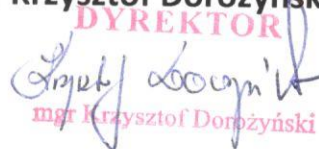 Krzysztof Dorożyński
DYREKTOR
mgr Krzysztof Dorożyński